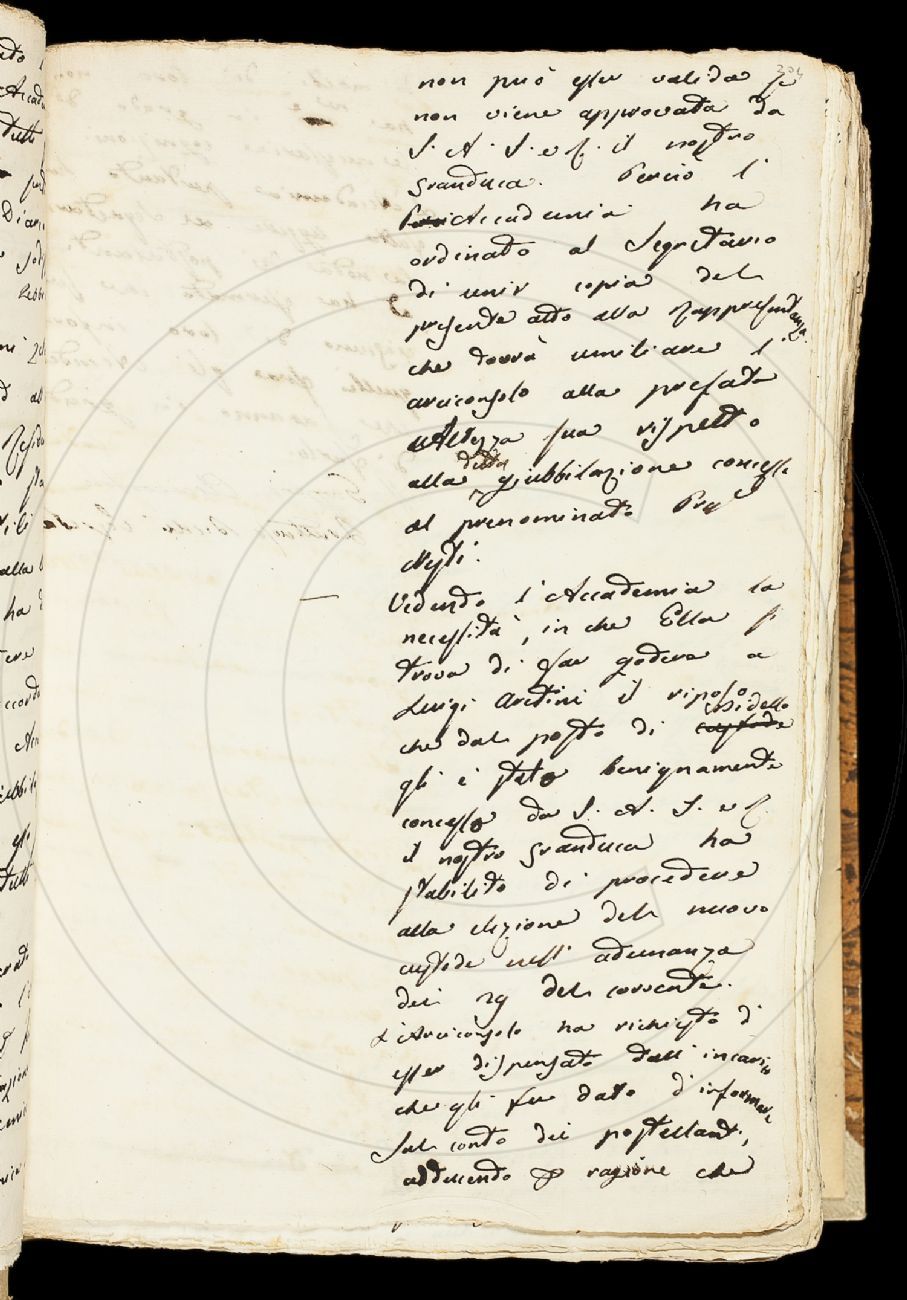 204
non può esser valida se
non viene approvata da
S. A. S. e R. il nostro
Granduca. Perciò l'
Accademia ha
ordinato al Segretario
di unir copia del
presente atto alla rappresentanza
che dovrà umiliare l'
arciconsolo alla prefata
Altezza sua rispetto
alla detta giubbilazione concessa
al prenominato
Nesti.
Vedendo l'Accademia la
necessità, in che Ella si
trova di far godere a
Luigi Aretini il riposo
che dal posto di custode bidello
gli è stato benignamente
concesso da S. A. S. e R.
il nostro Granduca ha
stabilito di procedere
alla elezione del nuovo
custode nell' adunanza
dei 29 del corrente.
L'Arciconsolo ha richiesto d'
esser dispensato dall' incarico
che gli fu dato d'informare
sul conto dei postellanti,
adducendo per ragione che